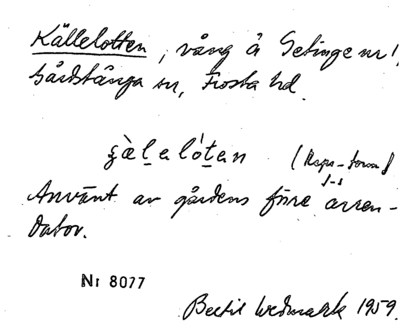 Källelotten, vång å Getinge nr 1,
Gårdstånga sn, Frosta hd.
ʂæ̀lelótan
Använt av gårdens förre arren-
dator.
Nr 8077
Bertil Wedmark 1959.